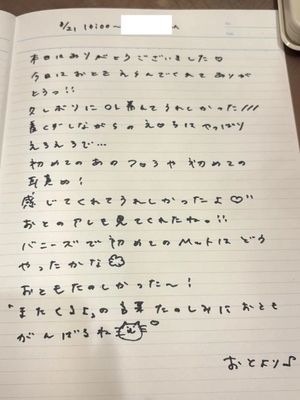 8/21 16:00〜
本日はありがとうございました♡
今日はおとをえらんでくれてありが
とうっ!!
久しぶりにOL着んてうれしかった///
着くずしながらのえっちはやっぱり
えろえろで…
初めてのあのフロろや初めての
耳責め!
感じてくれてうれしかったよ♡"
おとのアレも見てくれたねっ!!
バニーズで初めてのMatはどう
やったかな
おともたのしかった〜!
「またくるよ」の言葉たのしみにおとも
がんばるね
おとより♪